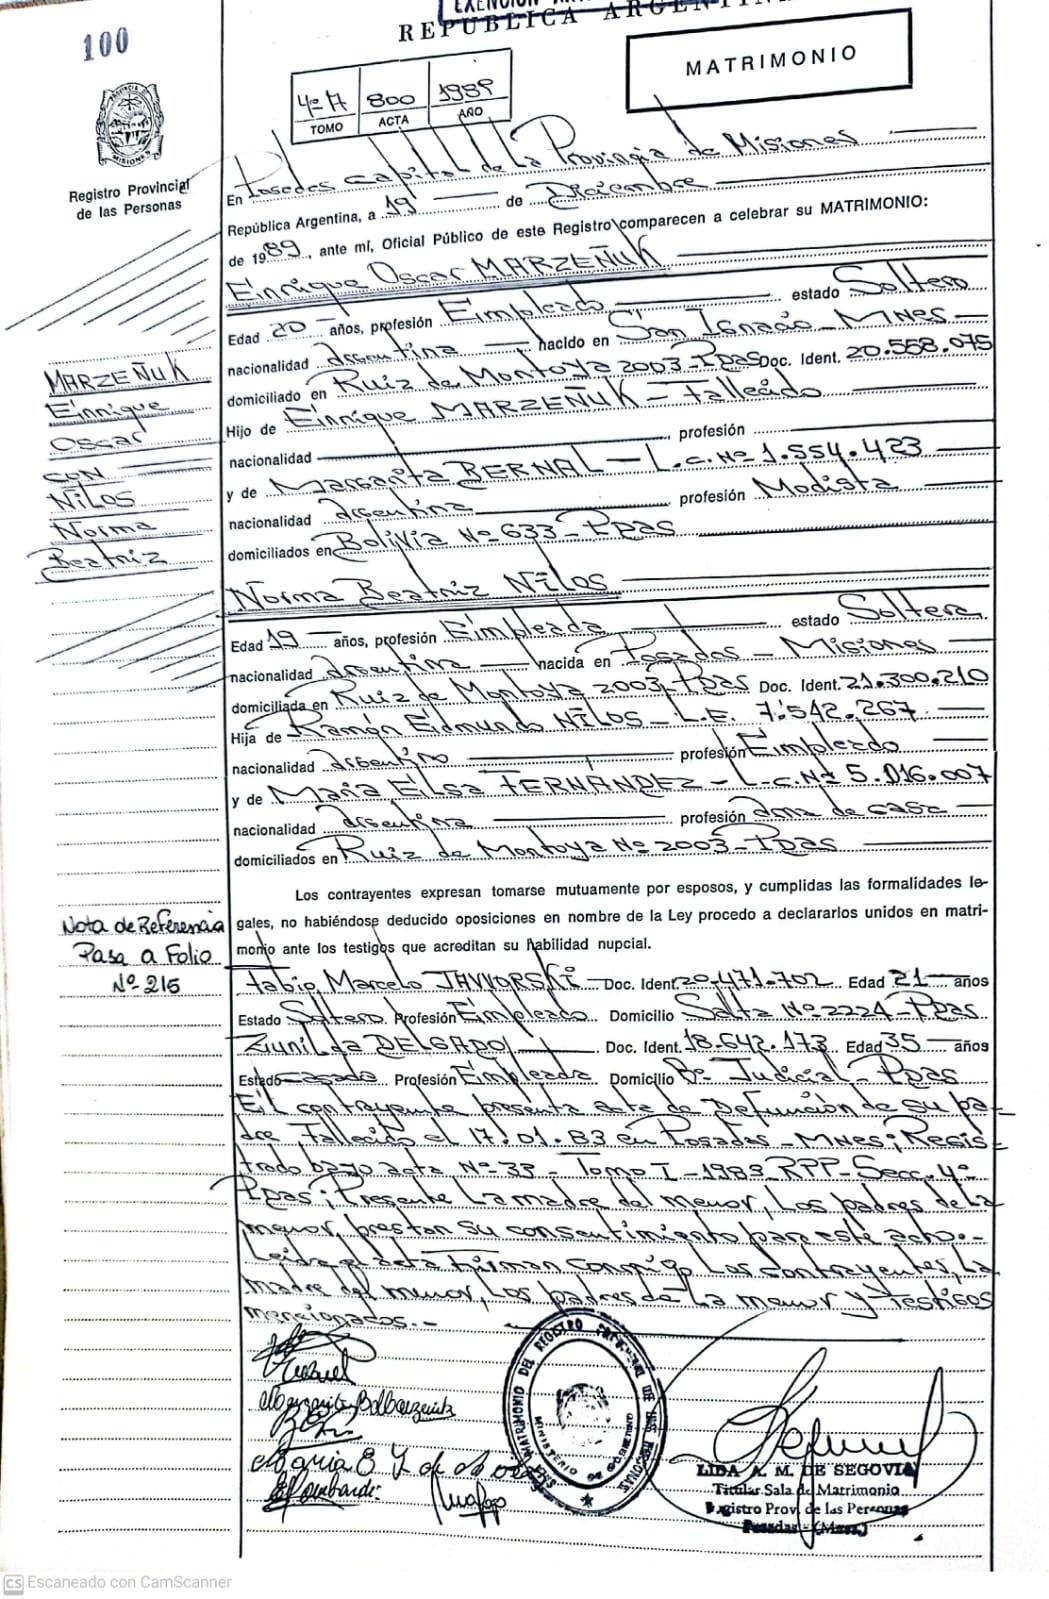 EXENCION
REPUBLICA ARGENTINA
100
MATRIMONIO
4º A 800 1989
TOMO ACTA AÑO
PROVINCIA DE MISIONES
Registro Provincial
de las Personas
En Posadas Capital de La Provincia de Misiones
República Argentina, a 19 de Diciembre
de 1989, ante mí, Oficial Público de este Registro comparecen a celebrar su MATRIMONIO:
Enrique Oscar MARZEÑUK
Edad 20 años, profesión Empleado estado Soltero
nacionalidad argentina nacido en San Ignacio - MNES -
domiciliado en Ruiz de Montoya 2003 - Pdas Doc. Ident. 20.558.075
Hijo de Enrique MARZEÑUK - Fallecido
nacionalidad profesión
y de Margarita BERNAL - L.C. Nº 1.554.423
nacionalidad argentina profesión Modista
domiciliados en Bolivia Nº 633 - Pdas
MARZEÑUK
Enrique
Oscar
CON
NILOS
Norma
Beatriz
Norma Beatriz NILOS
Edad 19 años, profesión Empleada estado Soltera
nacionalidad argentina nacida en Posadas - Misiones
domiciliada en Ruiz de Montoya 2003 - Pdas Doc. Ident. 21.300.210
Hija de Ramón Edmundo NILOS - L.E. 7.542.267
nacionalidad argentino profesión Empleado
y de Maria Elsa FERNÁNDEZ - L.C. Nº 5.016.007
nacionalidad argentina profesión ama de casa
domiciliados en Ruiz de Montoya Nº 2003 - Pdas
Los contrayentes expresan tomarse mutuamente por esposos, y cumplidas las formalidades le-
gales, no habiéndose deducido oposiciones en nombre de la Ley procedo a declararlos unidos en matri-
monio ante los testigos que acreditan su habilidad nupcial.
Nota de Referencia
Pasa a Folio
Nº 215
Fabio Marcelo JAVVORSKI Doc. Ident. 20.471.702 Edad 21 años
Estado Soltero Profesión Empleado Domicilio Salta Nº 2224 - Pdas
Zunilda DELGADO Doc. Ident. 18.642.173 Edad 35 años
Estado casada Profesión Empleada Domicilio Bº Judicial - Pdas
El contrayente presenta acta de Defunción de su pa-
dre, Fallecido el 17.01.83 en Posadas - MNES; Regis-
trado bajo acta Nº 33 - Tomo I - 1983 RPP - Secc. 4º
Pdas; Presente La madre del menor, Los padres de La
menor, prestan su consentimiento para este acto.-
Leida el acta Firman conmigo Los contrayentes, La
madre del menor, Los padres de La menor y testigos
mencionados.-
SALA MATRIMONIO DEL REGISTRO PROVINCIAL DE LAS PERSONAS
MINISTERIO DE GOBIERNO
LIDA A. M. DE SEGOVIA
Titular Sala de Matrimonio
Registro Prov. de las Personas
Posadas - (Mnes.)
CS Escaneado con CamScanner